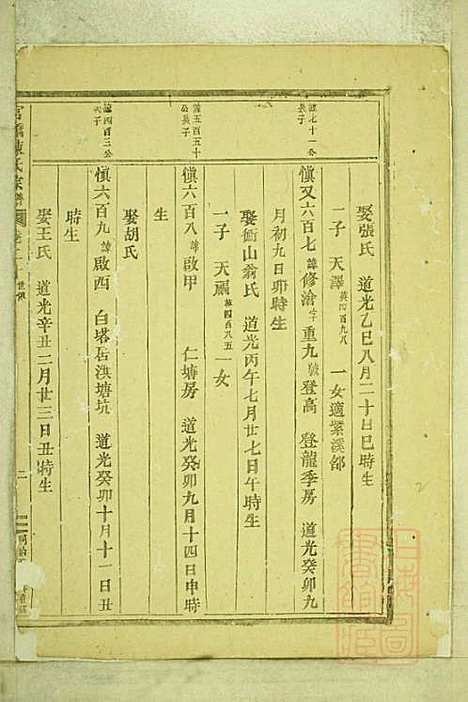 娶張氏 道光乙巳八月二十日巳時生
一子 天澤英四百九八 一女適紫溪邵
慎又六百七諱修滄字重九號登高 登龍季房 道光癸卯九
月初九日卯時生
娶衙山翁氏 道光丙午七月廿七日午時生
一子 天嗣英四百八五 一女
慎六百八諱啟甲 仁塘房 道光癸卯九月十四日申時
生
娶胡氏
慎六百九諱啟西 白塔居洪塘坑 道光癸卯十月十一日丑
時生
娶王氏 道光辛丑二月廿三日丑時生
七十一公
長子
五百五十
公長子
四百三公
次子